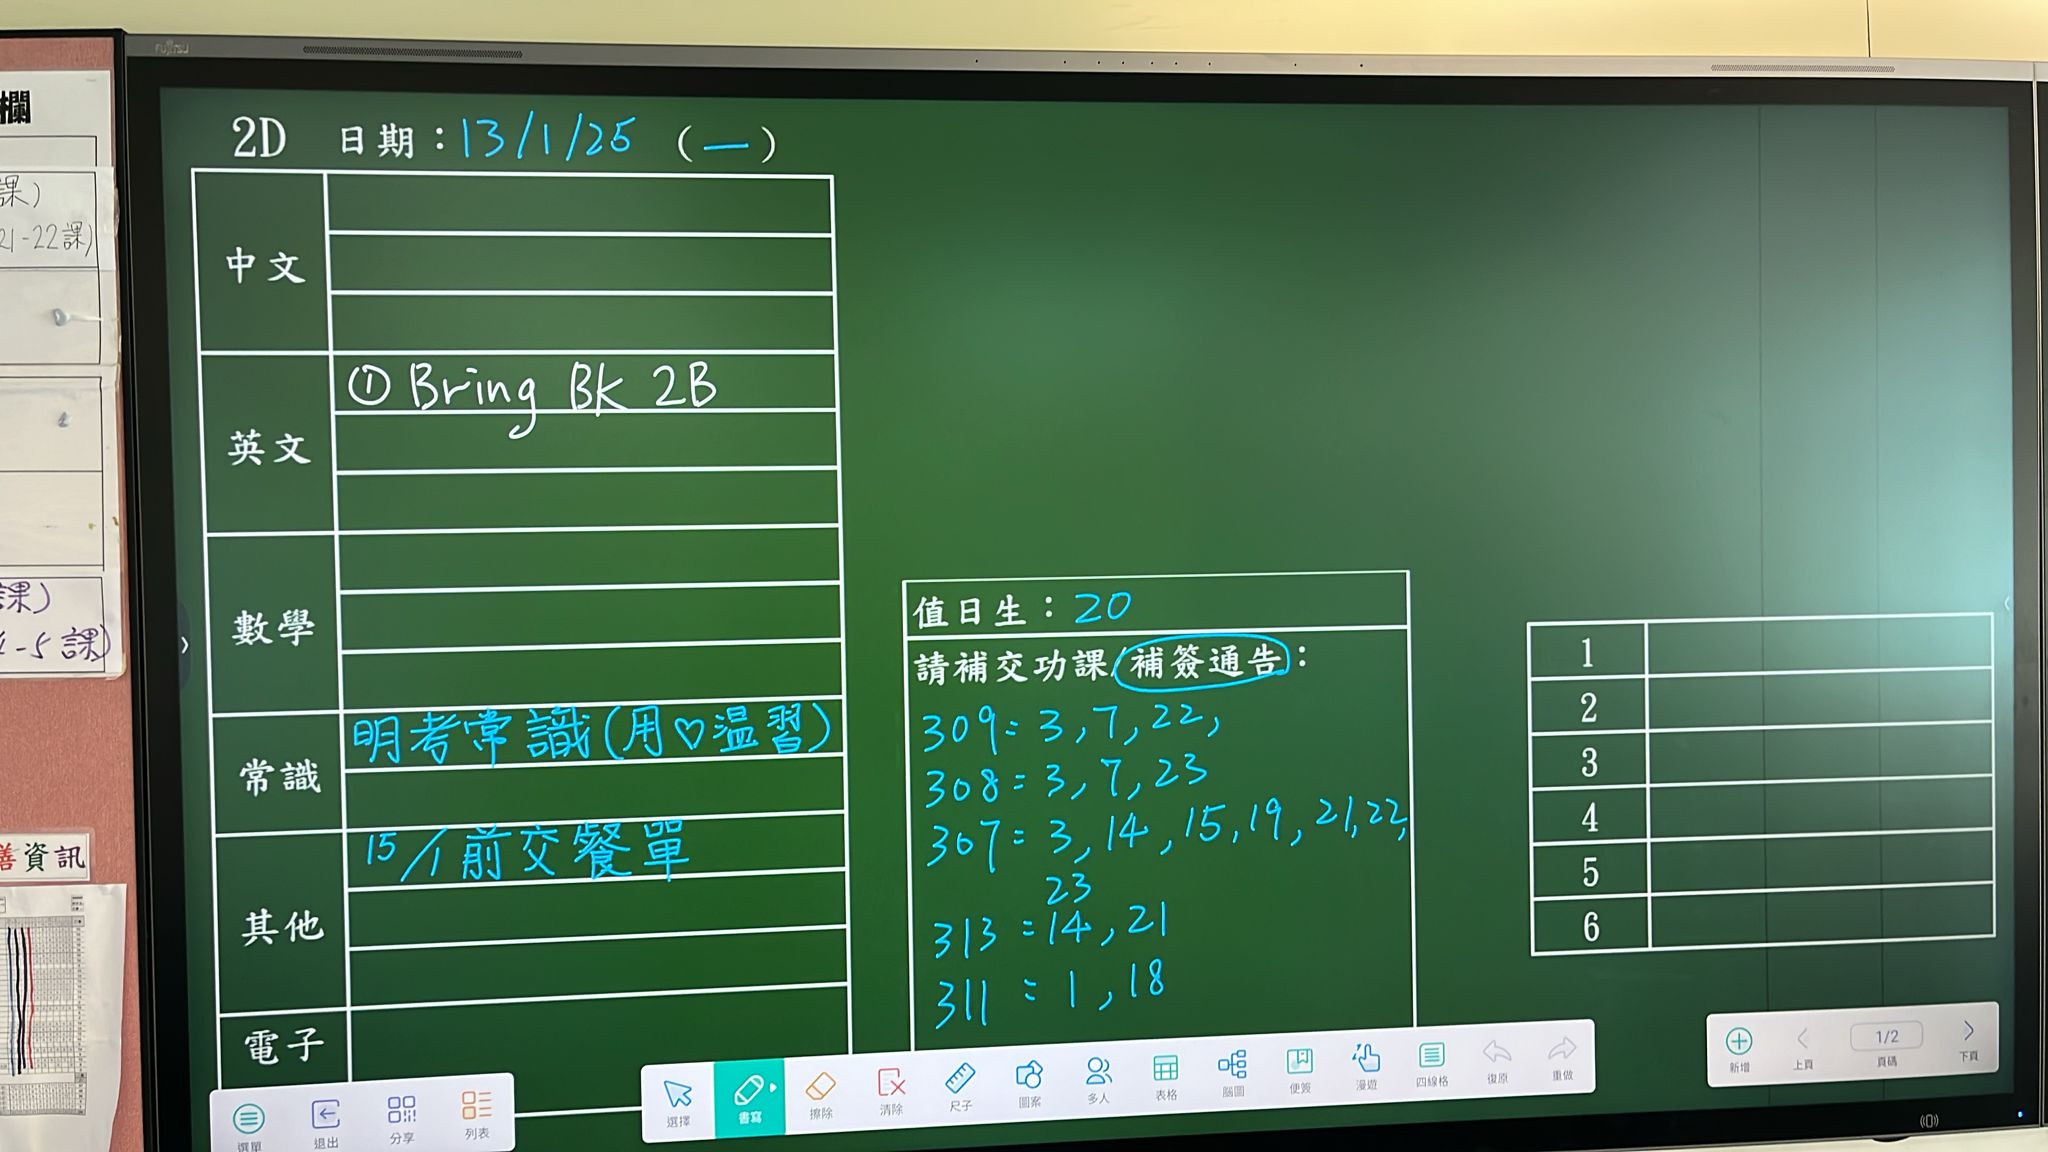 FUJITSU
欄
課)
21-22課)
課)
4-5課)
善資訊
2D 日期：13/1/25 (一)
中文
英文
① Bring BK 2B
數學
常識
明考常識(用♡温習)
其他
15/1前交餐單
電子
值日生：20
請補交功課/補簽通告：
309= 3, 7, 22,
308= 3, 7, 23
307= 3, 14, 15, 19, 21, 22,
23
313 = 14, 21
311 = 1, 18
1
2
3
4
5
6
選單
退出
分享
列表
選擇
書寫
擦除
清除
尺子
圖案
多人
表格
腦圖
便簽
漫遊
四線格
復原
重做
新增
上頁
1/2
頁碼
下頁